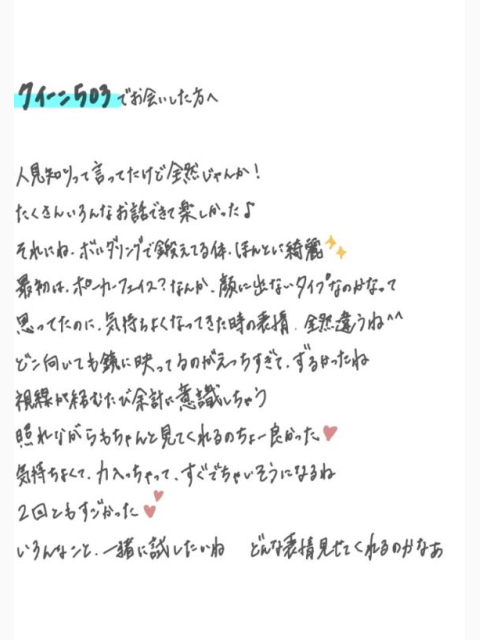 クイーン503でお会いした方へ
人見知りって言ってたけど全然じゃんか！
たくさんいろんなお話できて楽しかった♪
それにね、ボルダリングで鍛えてる体、ほんとに綺麗✨
最初は、ポーカーフェイス？なんか、顔に出ないタイプなのかなって
思ってたのに、気持ちよくなってきた時の表情、全然違うね^^
どこ向いても鏡に映ってるのがえっちすぎて、ずるかったね
視線が絡むたび余計に意識しちゃう
照れながらもちゃんと見てくれるのちょー良かった❤
気持ちよくて、力入っちゃって、すぐでちゃいそうになるね
2回ともすごかった💕
いろんなこと、一緒に試したいね　どんな表情見せてくれるのかなあ